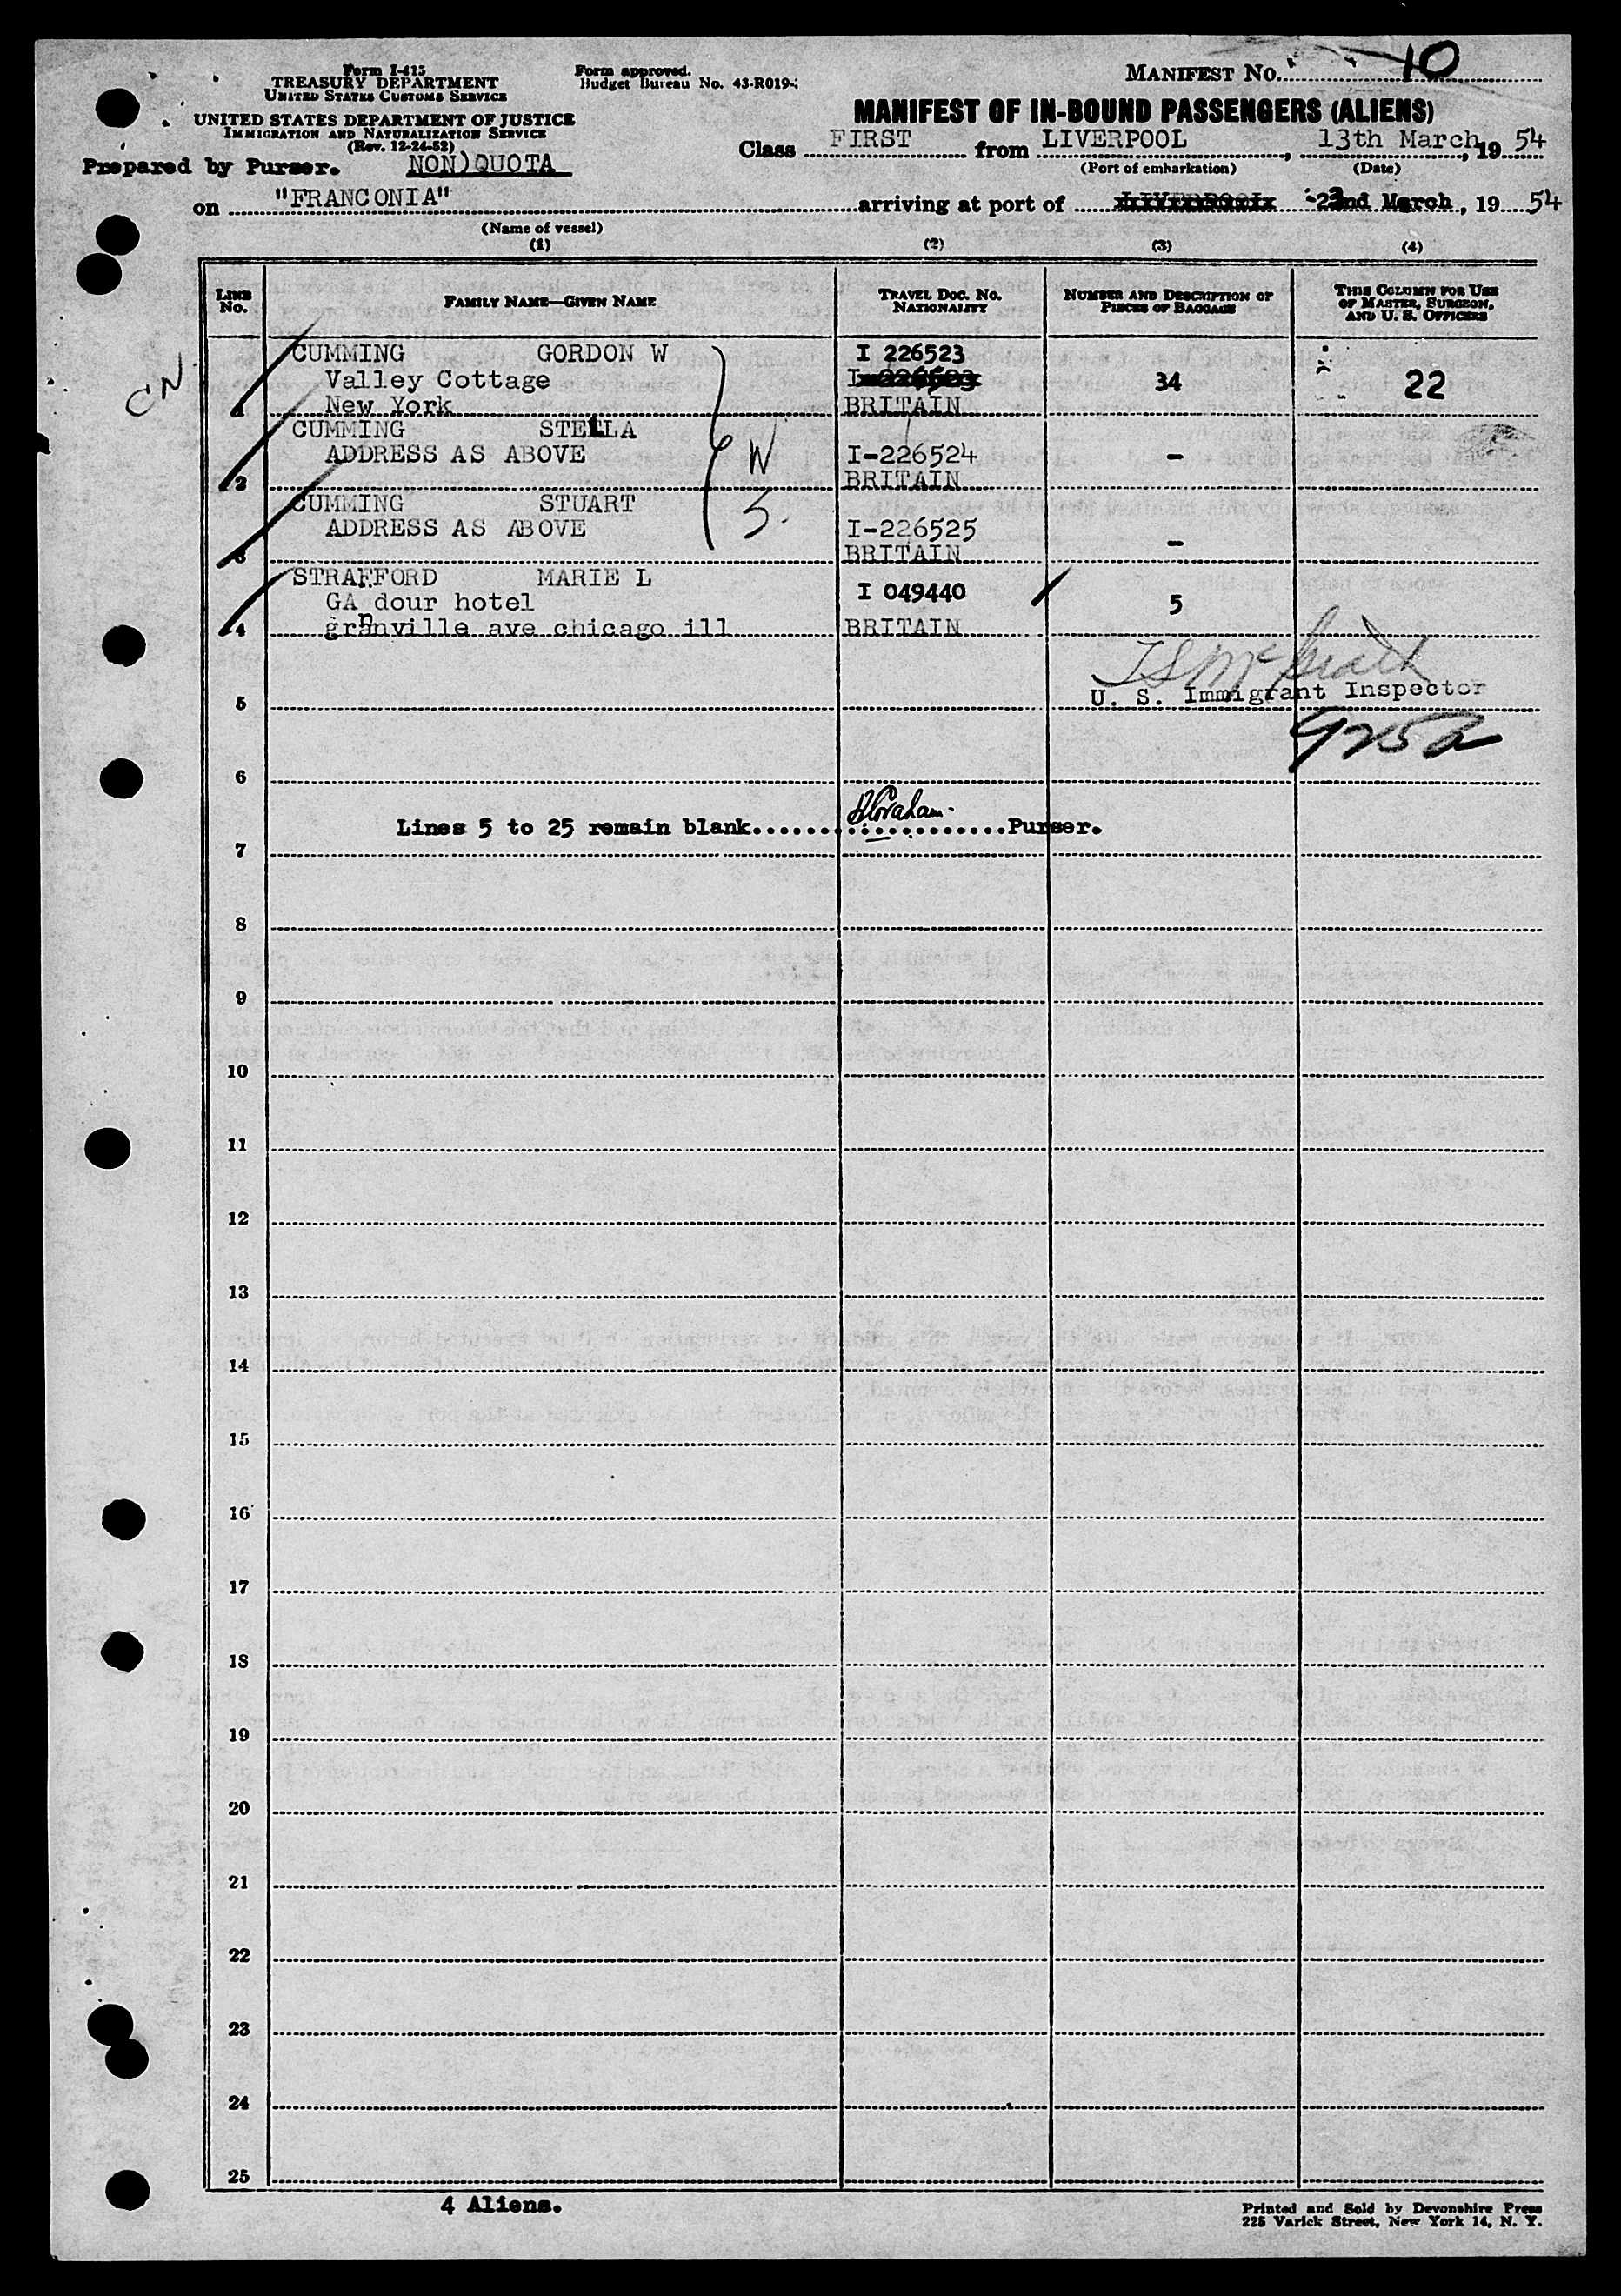 Form I-415
TREASURY DEPARTMENT
UNITED STATES CUSTOMS SERVICE
UNITED STATES DEPARTMENT OF JUSTICE
IMMIGRATION AND NATURALIZATION SERVICE
(Rev. 12-24-52)
Form approved.
Budget Bureau No. 43-R019-
MANIFEST No. 10
MANIFEST OF IN-BOUND PASSENGERS (ALIENS)
Class FIRST from LIVERPOOL, 13th March, 19 54
(Port of embarkation) (Date)
Prepared by Purser. NON)QUOTA
on "FRANCONIA" arriving at port of 23nd March, 19 54
(Name of vessel)
(1) (2) (3) (4)
LINE No. FAMILY NAME—GIVEN NAME TRAVEL DOC. NO. NATIONALITY NUMBER AND DESCRIPTION OF PIECES OF BAGGAGE THIS COLUMN FOR USE OF MASTER, SURGEON, AND U. S. OFFICERS
CUMMING GORDON W I 226523
CN Valley Cottage I-226523 34 22
1 New York BRITAIN
CUMMING STELLA
ADDRESS AS ABOVE W I-226524 -
2 BRITAIN
CUMMING STUART
ADDRESS AS ABOVE S. I-226525 -
3 BRITAIN
STRAFFORD MARIE L I 049440
GA dour hotel 5
n
4 granville ave chicago ill BRITAIN
U. S. Immigrant Inspector
5
9252
6
Lines 5 to 25 remain blank. Graham. Purser.
7
8
9
10
11
12
13
14
15
16
17
18
19
20
21
22
23
24
25
4 Aliens.
Printed and Sold by Devonshire Press
225 Varick Street, New York 14, N. Y.